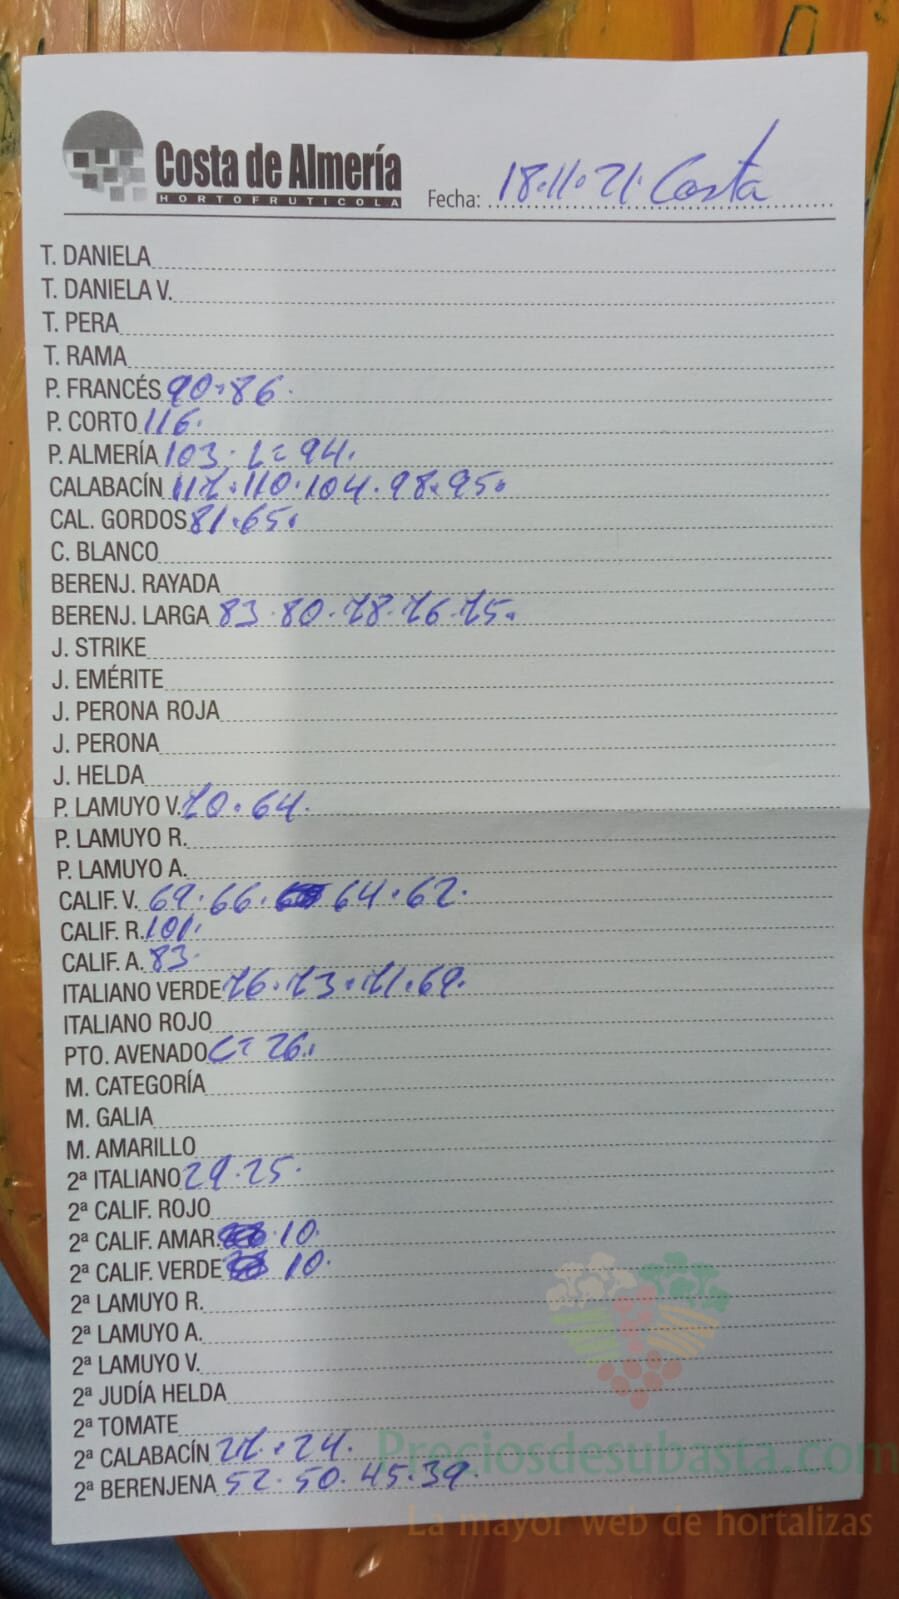 Costa de Almería
HORTOFRUTICOLA
Fecha: 18.11.21. Costa
T. DANIELA
T. DANIELA V.
T. PERA
T. RAMA
P. FRANCÉS 90.86.
P. CORTO 116.
P. ALMERÍA 103. L= 94.
CALABACÍN 117.110.104.98.95.
CAL. GORDOS 81.65.
C. BLANCO
BERENJ. RAYADA
BERENJ. LARGA 83.80.78.76.75.
J. STRIKE
J. EMÉRITE
J. PERONA ROJA
J. PERONA
J. HELDA
P. LAMUYO V. 70.64.
P. LAMUYO R.
P. LAMUYO A.
CALIF. V. 69.66. 64.62.
CALIF. R. 101.
CALIF. A. 83.
ITALIANO VERDE 76.73.71.69.
ITALIANO ROJO
PTO. AVENADO C= 26.
M. CATEGORÍA
M. GALIA
M. AMARILLO
2ª ITALIANO 29.25.
2ª CALIF. ROJO
2ª CALIF. AMAR. 10.
2ª CALIF. VERDE 10.
2ª LAMUYO R.
2ª LAMUYO A.
2ª LAMUYO V.
2ª JUDÍA HELDA
2ª TOMATE
2ª CALABACÍN 27.24.
2ª BERENJENA 52.50.45.39.
Preciosdesubasta.com
La mayor web de hortalizas